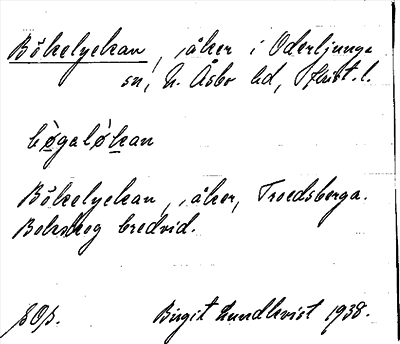 Bökelyckan, åker i Oderljunga
sn, N. Åsbo hd, Krist. l.
bøgaløkan
Bökelyckan, åker, Troedsberga.
Bokskog bredvid.
Birgit Lundkvist 1938.